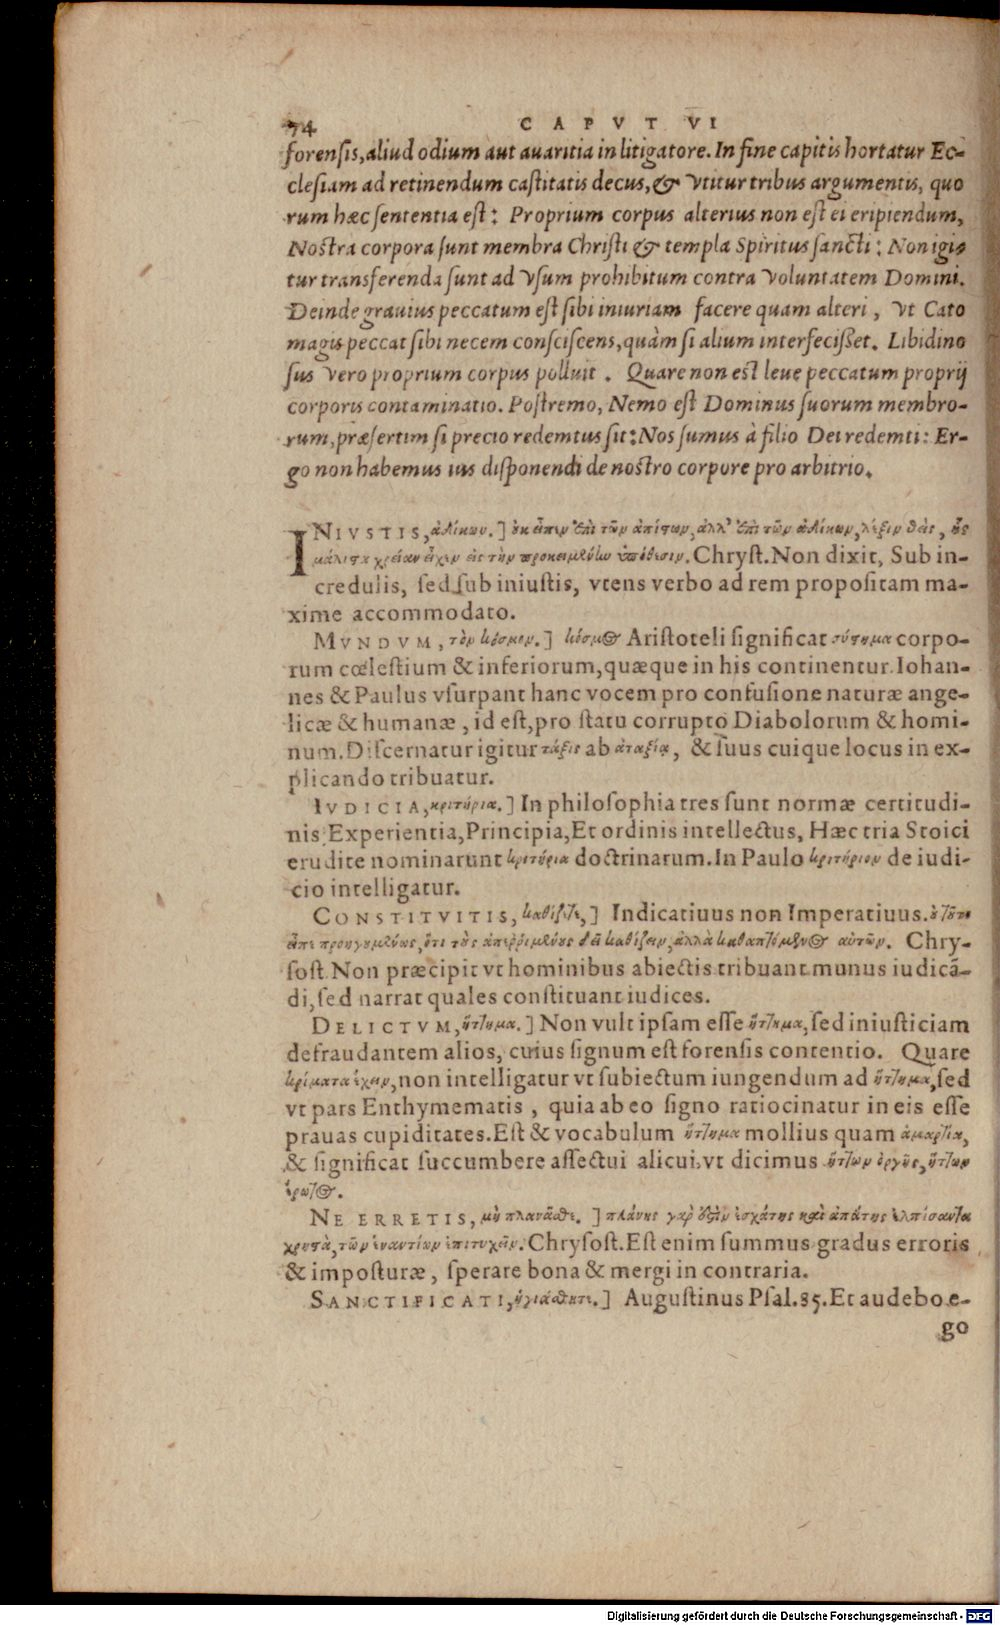 74
CAPVT VI
forensis, aliud odium aut auaritia in litigatore. In fine capitis hortatur Ec-
clesiam ad retinendum castitatis decus, & vtitur tribus argumentis, quo
rum hæc sententia est: Proprium corpus alterius non est ei eripiendum,
Nostra corpora sunt membra Christi & templa Spiritus sancti: Non igi-
tur transferenda sunt ad vsum prohibitum contra voluntatem Domini.
Deinde grauius peccatum est sibi iniuriam facere quam alteri, vt Cato
magis peccat sibi necem consciscens, quàm si alium interfecisset. Libidino
sus vero proprium corpus polluit. Quare non est leue peccatum proprij
corporis contaminatio. Postremo, Nemo est Dominus suorum membro-
rum, præsertim si precio redemtus sit: Nos sumus à filio Dei redemti: Er-
go non habemus ius disponendi de nostro corpore pro arbitrio.
INIVSTIS, ἀδίκων.] οὐκ εἶπεν ἐπὶ τῶν ἀπίστων, ἀλλ' ἐπὶ τῶν ἀδίκων, λέξιν θεὶς, ἧς
μάλιστα χρείαν εἶχεν εἰς τὴν προκειμένην ὑπόθεσιν. Chryst. Non dixit, Sub in-
credulis, sed sub iniustis, vtens verbo ad rem propositam ma-
xime accommodato.
MVNDVM, τὸν κόσμον.] κόσμος Aristoteli significat σύστημα corpo-
rum cœlestium & inferiorum, quæque in his continentur. Iohan-
nes & Paulus vsurpant hanc vocem pro confusione naturæ ange-
licæ & humanæ, id est, pro statu corrupto Diabolorum & homi-
num. Discernatur igitur τάξις ab ἀταξίᾳ, & suus cuique locus in ex-
plicando tribuatur.
IVDICIA, κριτήρια.] In philosophia tres sunt normæ certitudi-
nis, Experientia, Principia, Et ordinis intellectus, Hæc tria Stoici
erudite nominarunt κριτήρια doctrinarum. In Paulo κριτήριον de iudi-
cio intelligatur.
CONSTITVITIS, καθίζετε,] Indicatiuus non Imperatiuus. οὐ τοῦτο
εἶπε προηγουμένως, ὅτι τοὺς ἀπερριμένους δεῖ καθίζειν, ἀλλὰ καθαπτόμενος αὐτῶν. Chry-
sost. Non præcipit vt hominibus abiectis tribuant munus iudicā-
di, sed narrat quales constituant iudices.
DELICTVM, ἥττημα.] Non vult ipsam esse ἥττημα, sed iniusticiam
defraudantem alios, cuius signum est forensis contentio. Quare
κρίματα ἔχειν, non intelligatur vt subiectum iungendum ad ἥττημα, sed
vt pars Enthymematis, quia ab eo signo ratiocinatur in eis esse
prauas cupiditates. Est & vocabulum ἥττημα mollius quam ἁμαρτία,
& significat succumbere affectui alicui, vt dicimus ἥττων ὀργῆς, ἥττων
ἔρωτος.
NE ERRETIS, μὴ πλανᾶσθε.] πλάνης γὰρ ἐστὶν ἐσχάτης καὶ ἀπάτης ἐλπίσαντα
χρηστὰ, τῶν ἐναντίων ἐπιτυχεῖν. Chrysost. Est enim summus gradus erroris
& imposturæ, sperare bona & mergi in contraria.
SANCTIFICATI, ἡγιάσθητε.] Augustinus Psal. 85. Et audebo e-
go
Digitalisierung gefördert durch die Deutsche Forschungsgemeinschaft - DFG